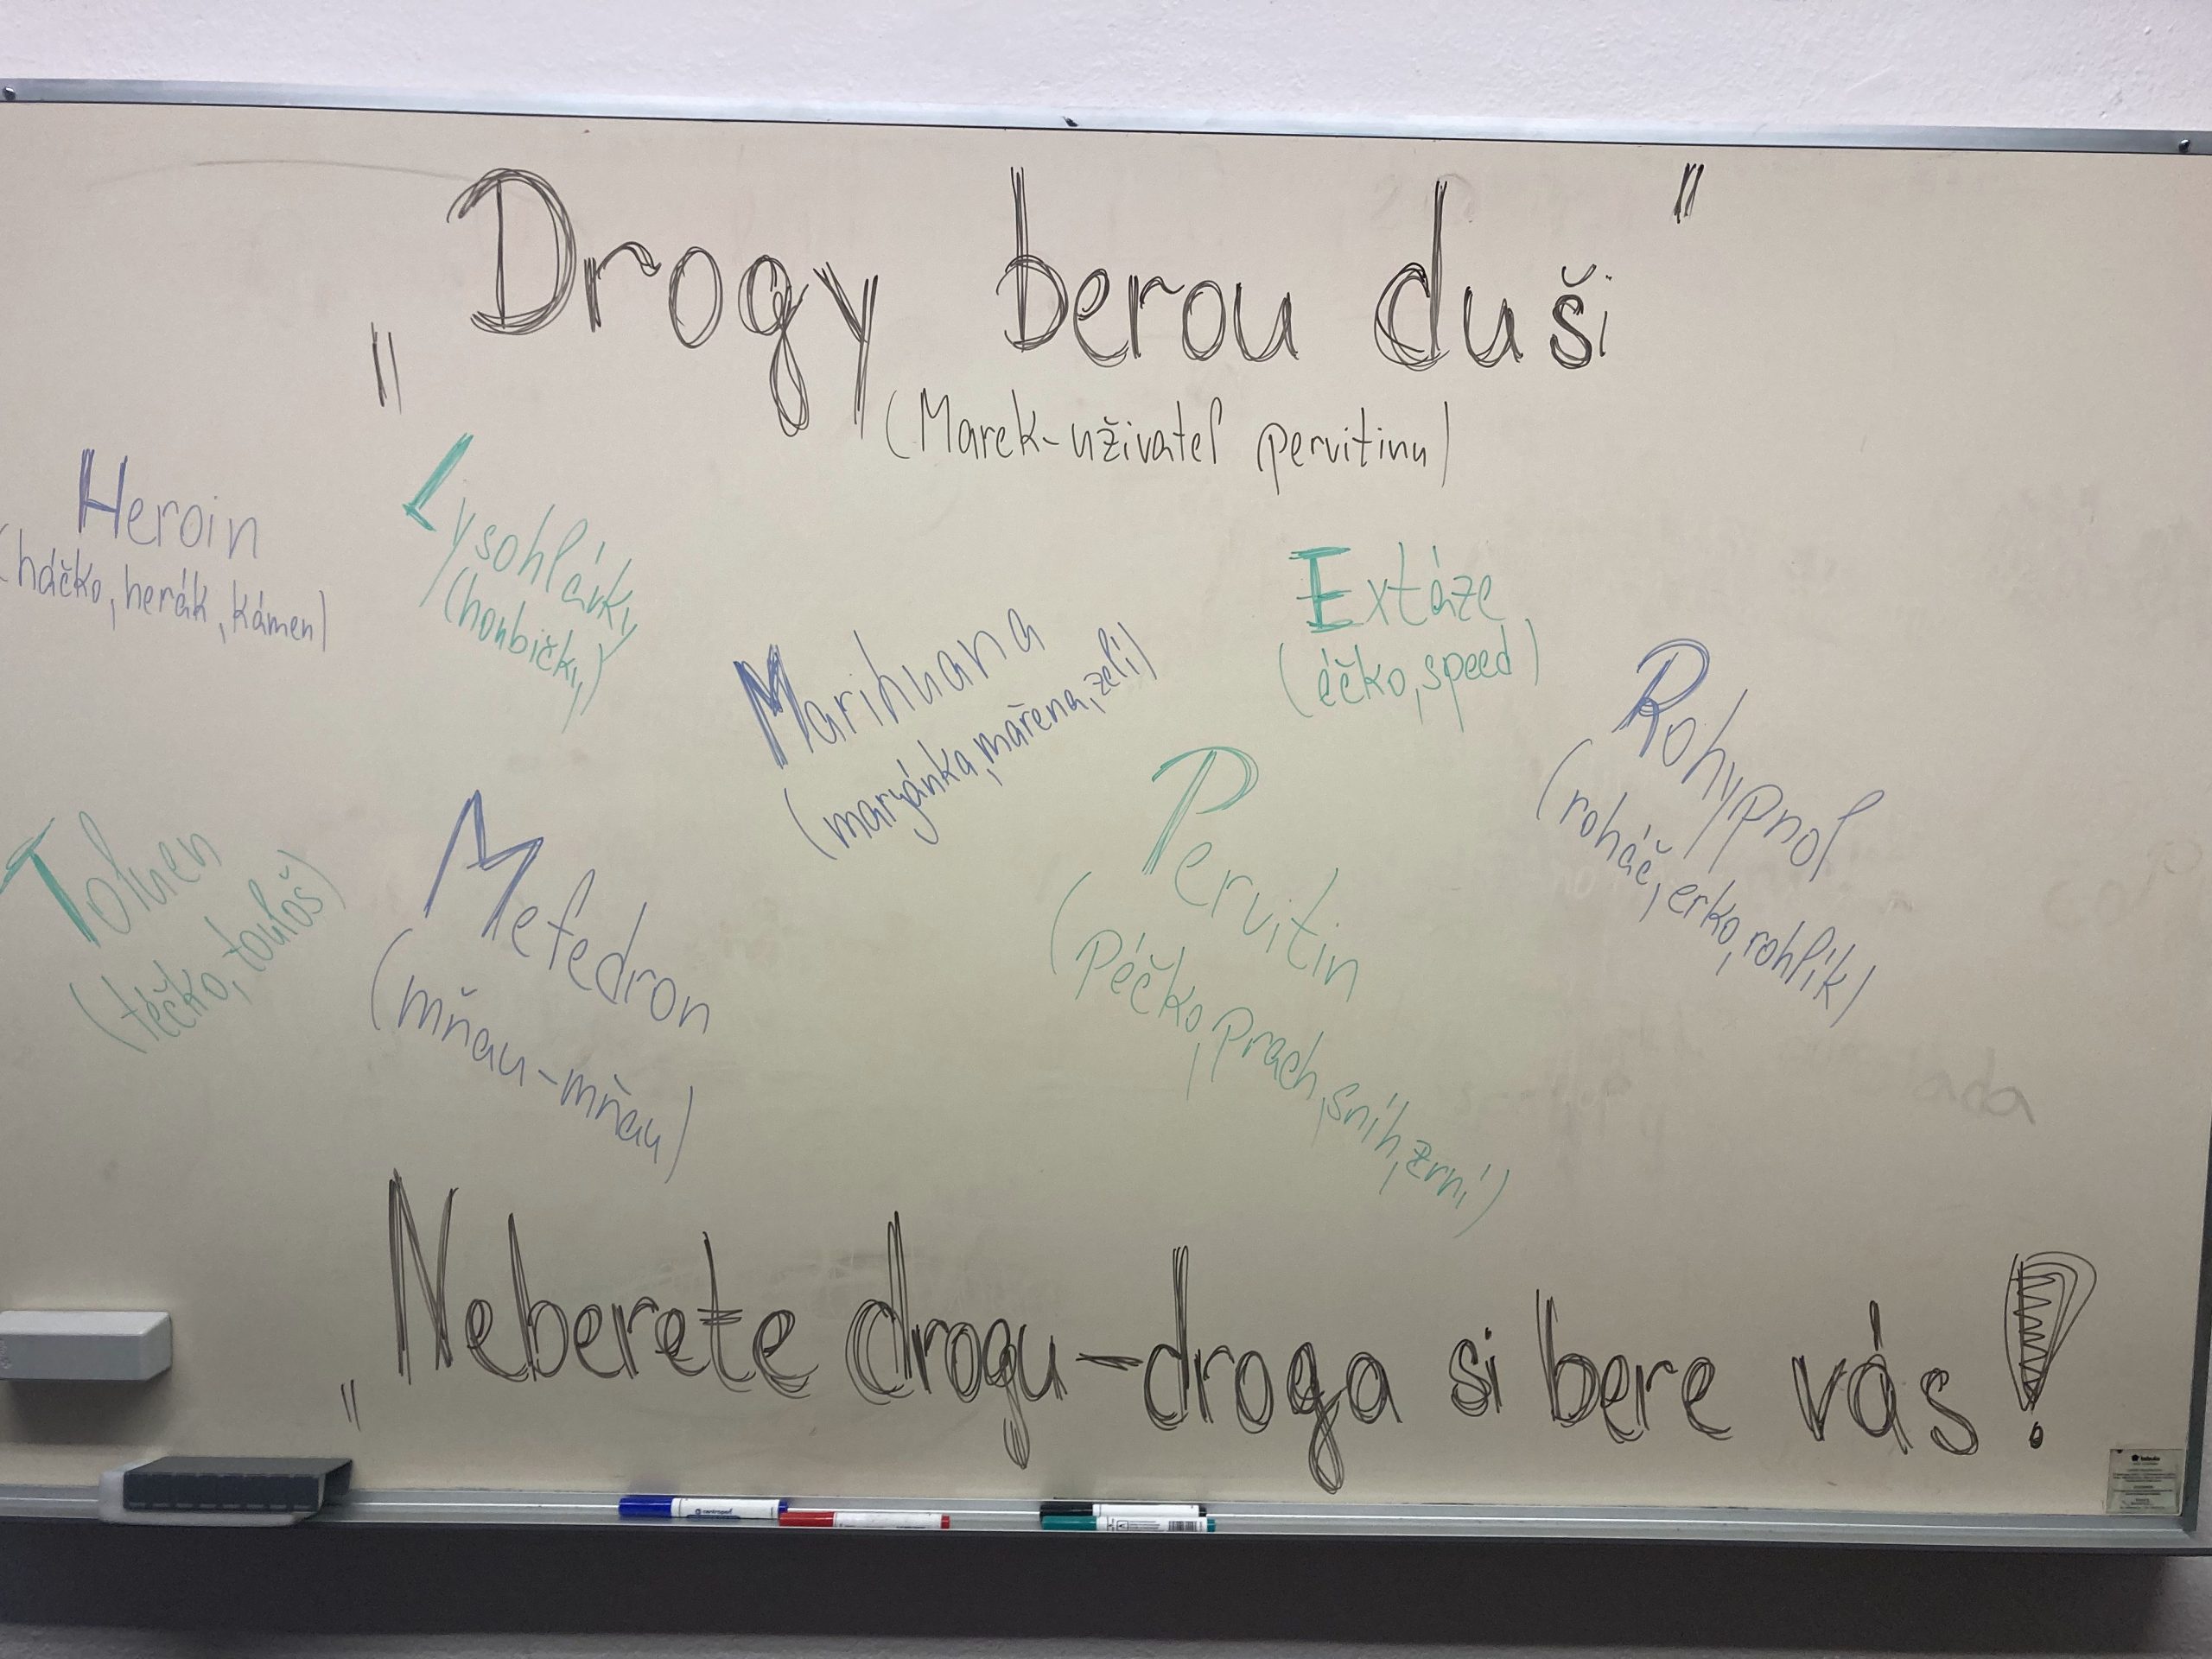 „Drogy berou duši"
(Marek-uživatel pervitinu)
Heroin
(háčko, herák, kámen)
Lysohlávky
(houbičky)
Marihuana
(maryánka, mařena, zelí)
Extáze
(éčko, speed)
Rohypnol
(roháč, erko, rohlík)
Toluen
(téčko, touloš)
Mefedron
(mňau-mňau)
Pervitin
(Péčko, prach, sníh, zrní)
„Neberete drogu-droga si bere vás!
centropen